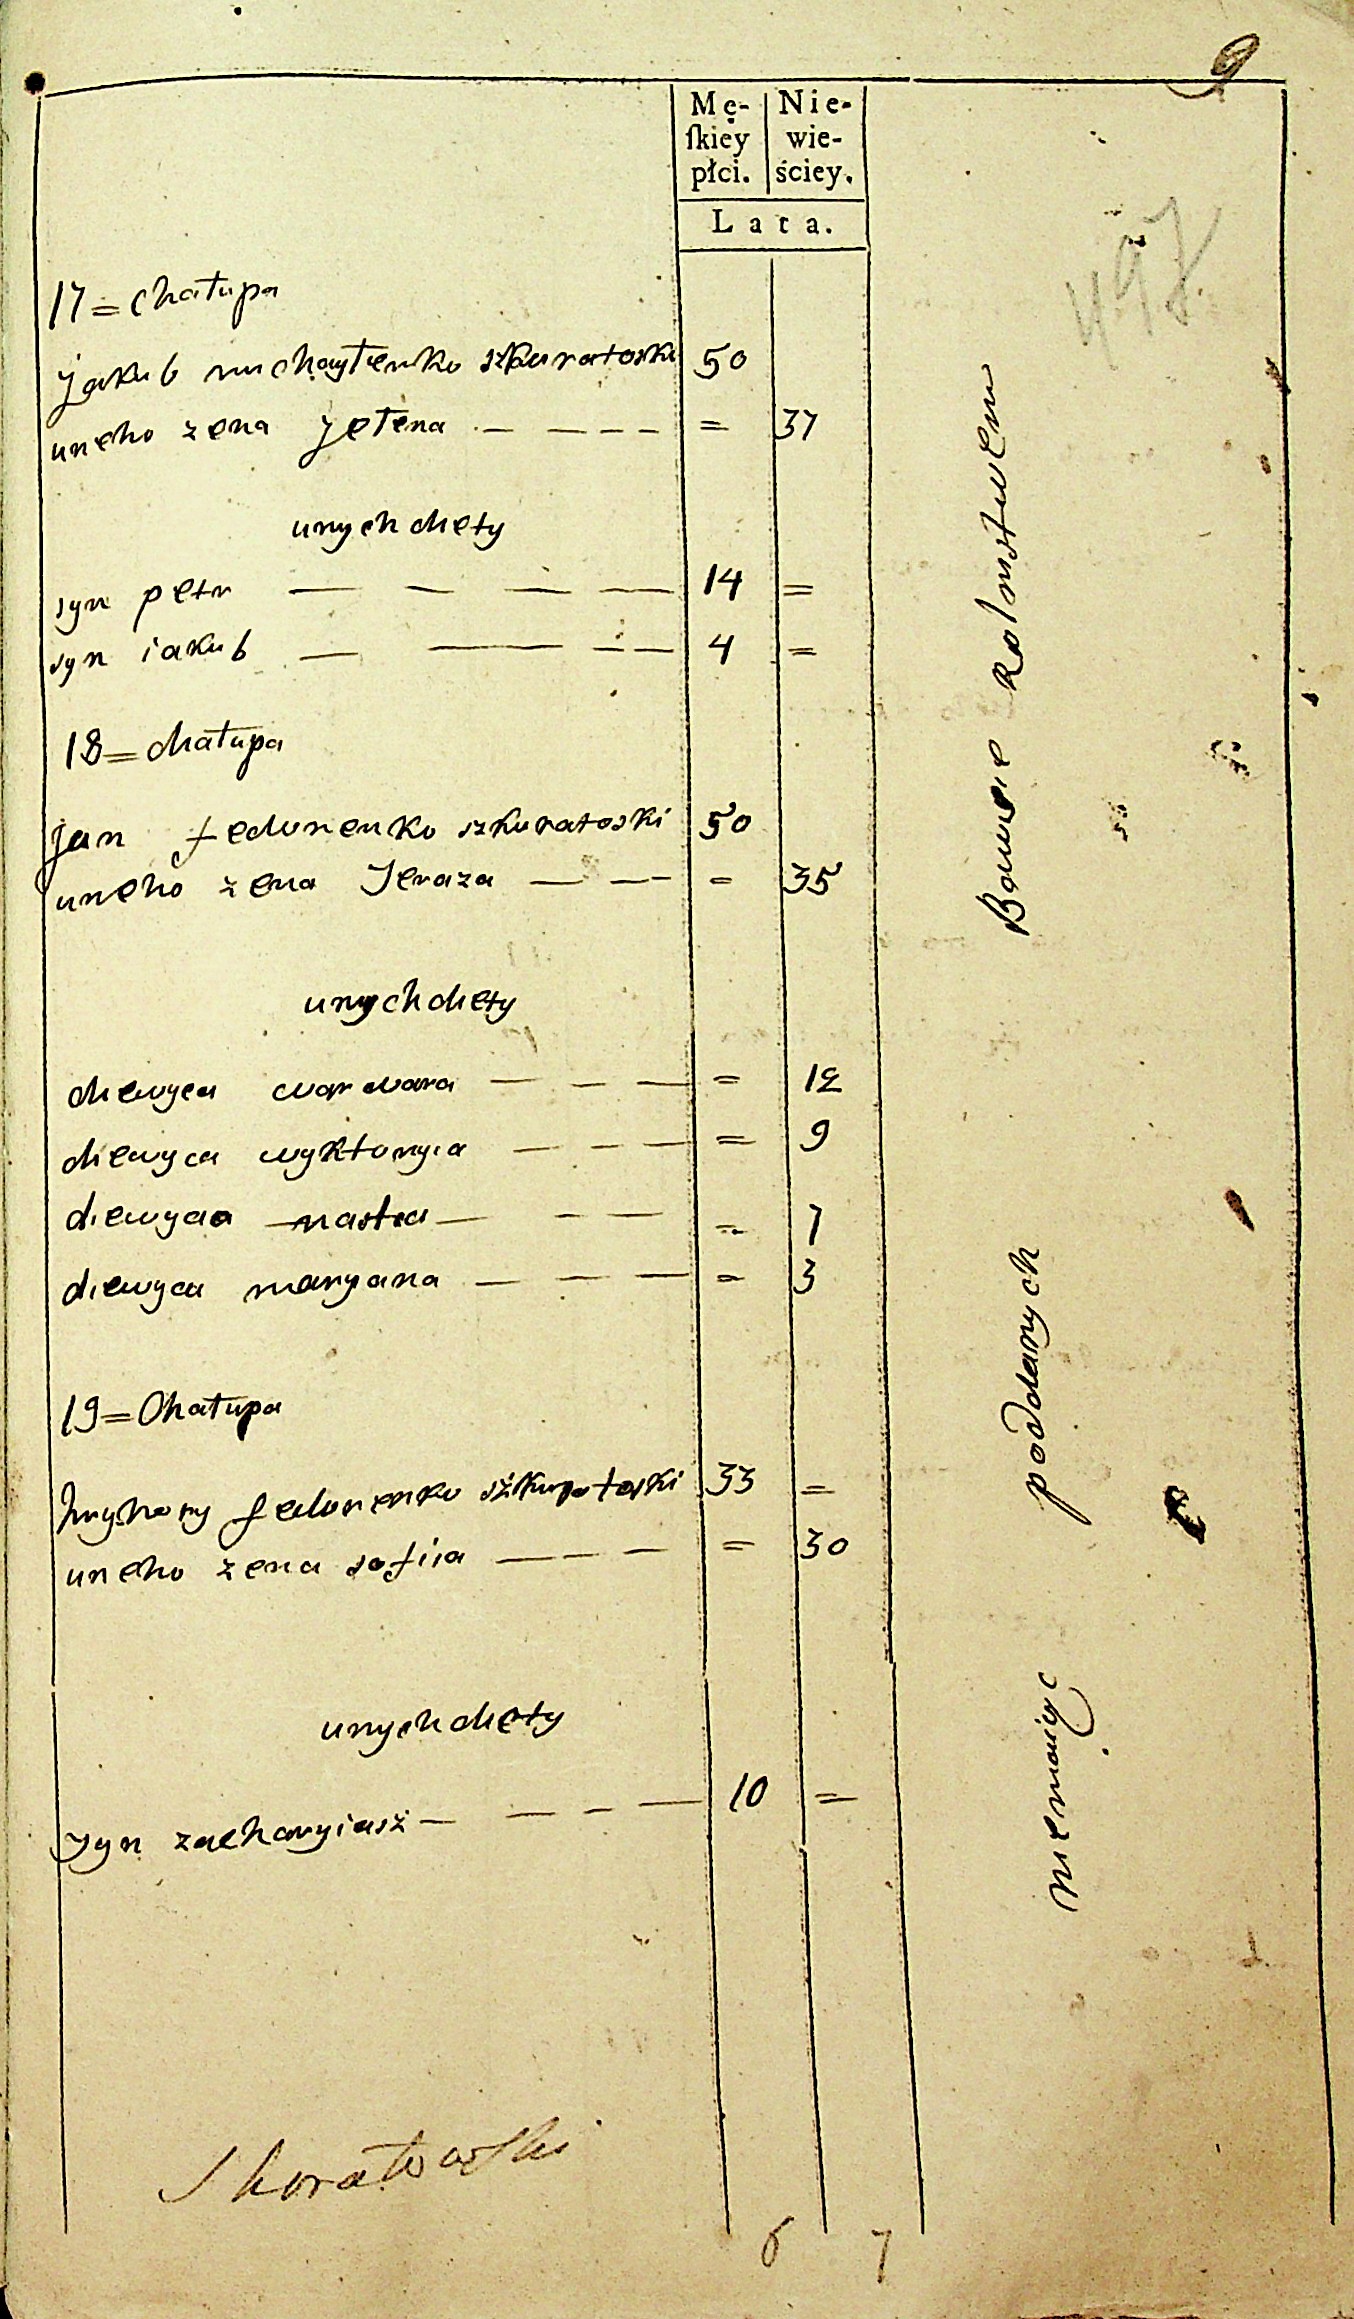 9
Mę- Nie-
ſkiey wie-
płci. ściey.
Lata.
497
17 = Chałupa
Jakub michayłenko szkuratoski 50
uneho zena Jełena - - - - = 37
unych diety
syn petr — — — — 14 =
syn iakub — — - — 4 =
18 = chałupa
jan fedorenko szkuratoski 50
uneho żena Jeraza — - - - = 35
unych diety
diewyca warwara — - — = 12
diewyca wyktoryia — - - — = 9
diewyca — nasta — - — = 7
diewyca maryana — — — = 3
19 = Chałupa
hryhory fedorenko szkuratoski 33 =
uneho żena sofiia — - - — = 30
unych diety
Syn zacharyiasz — — - — 10 =
Bawiące rolnistwem
poddanych
niemaiąc
Skoratowski
6 7